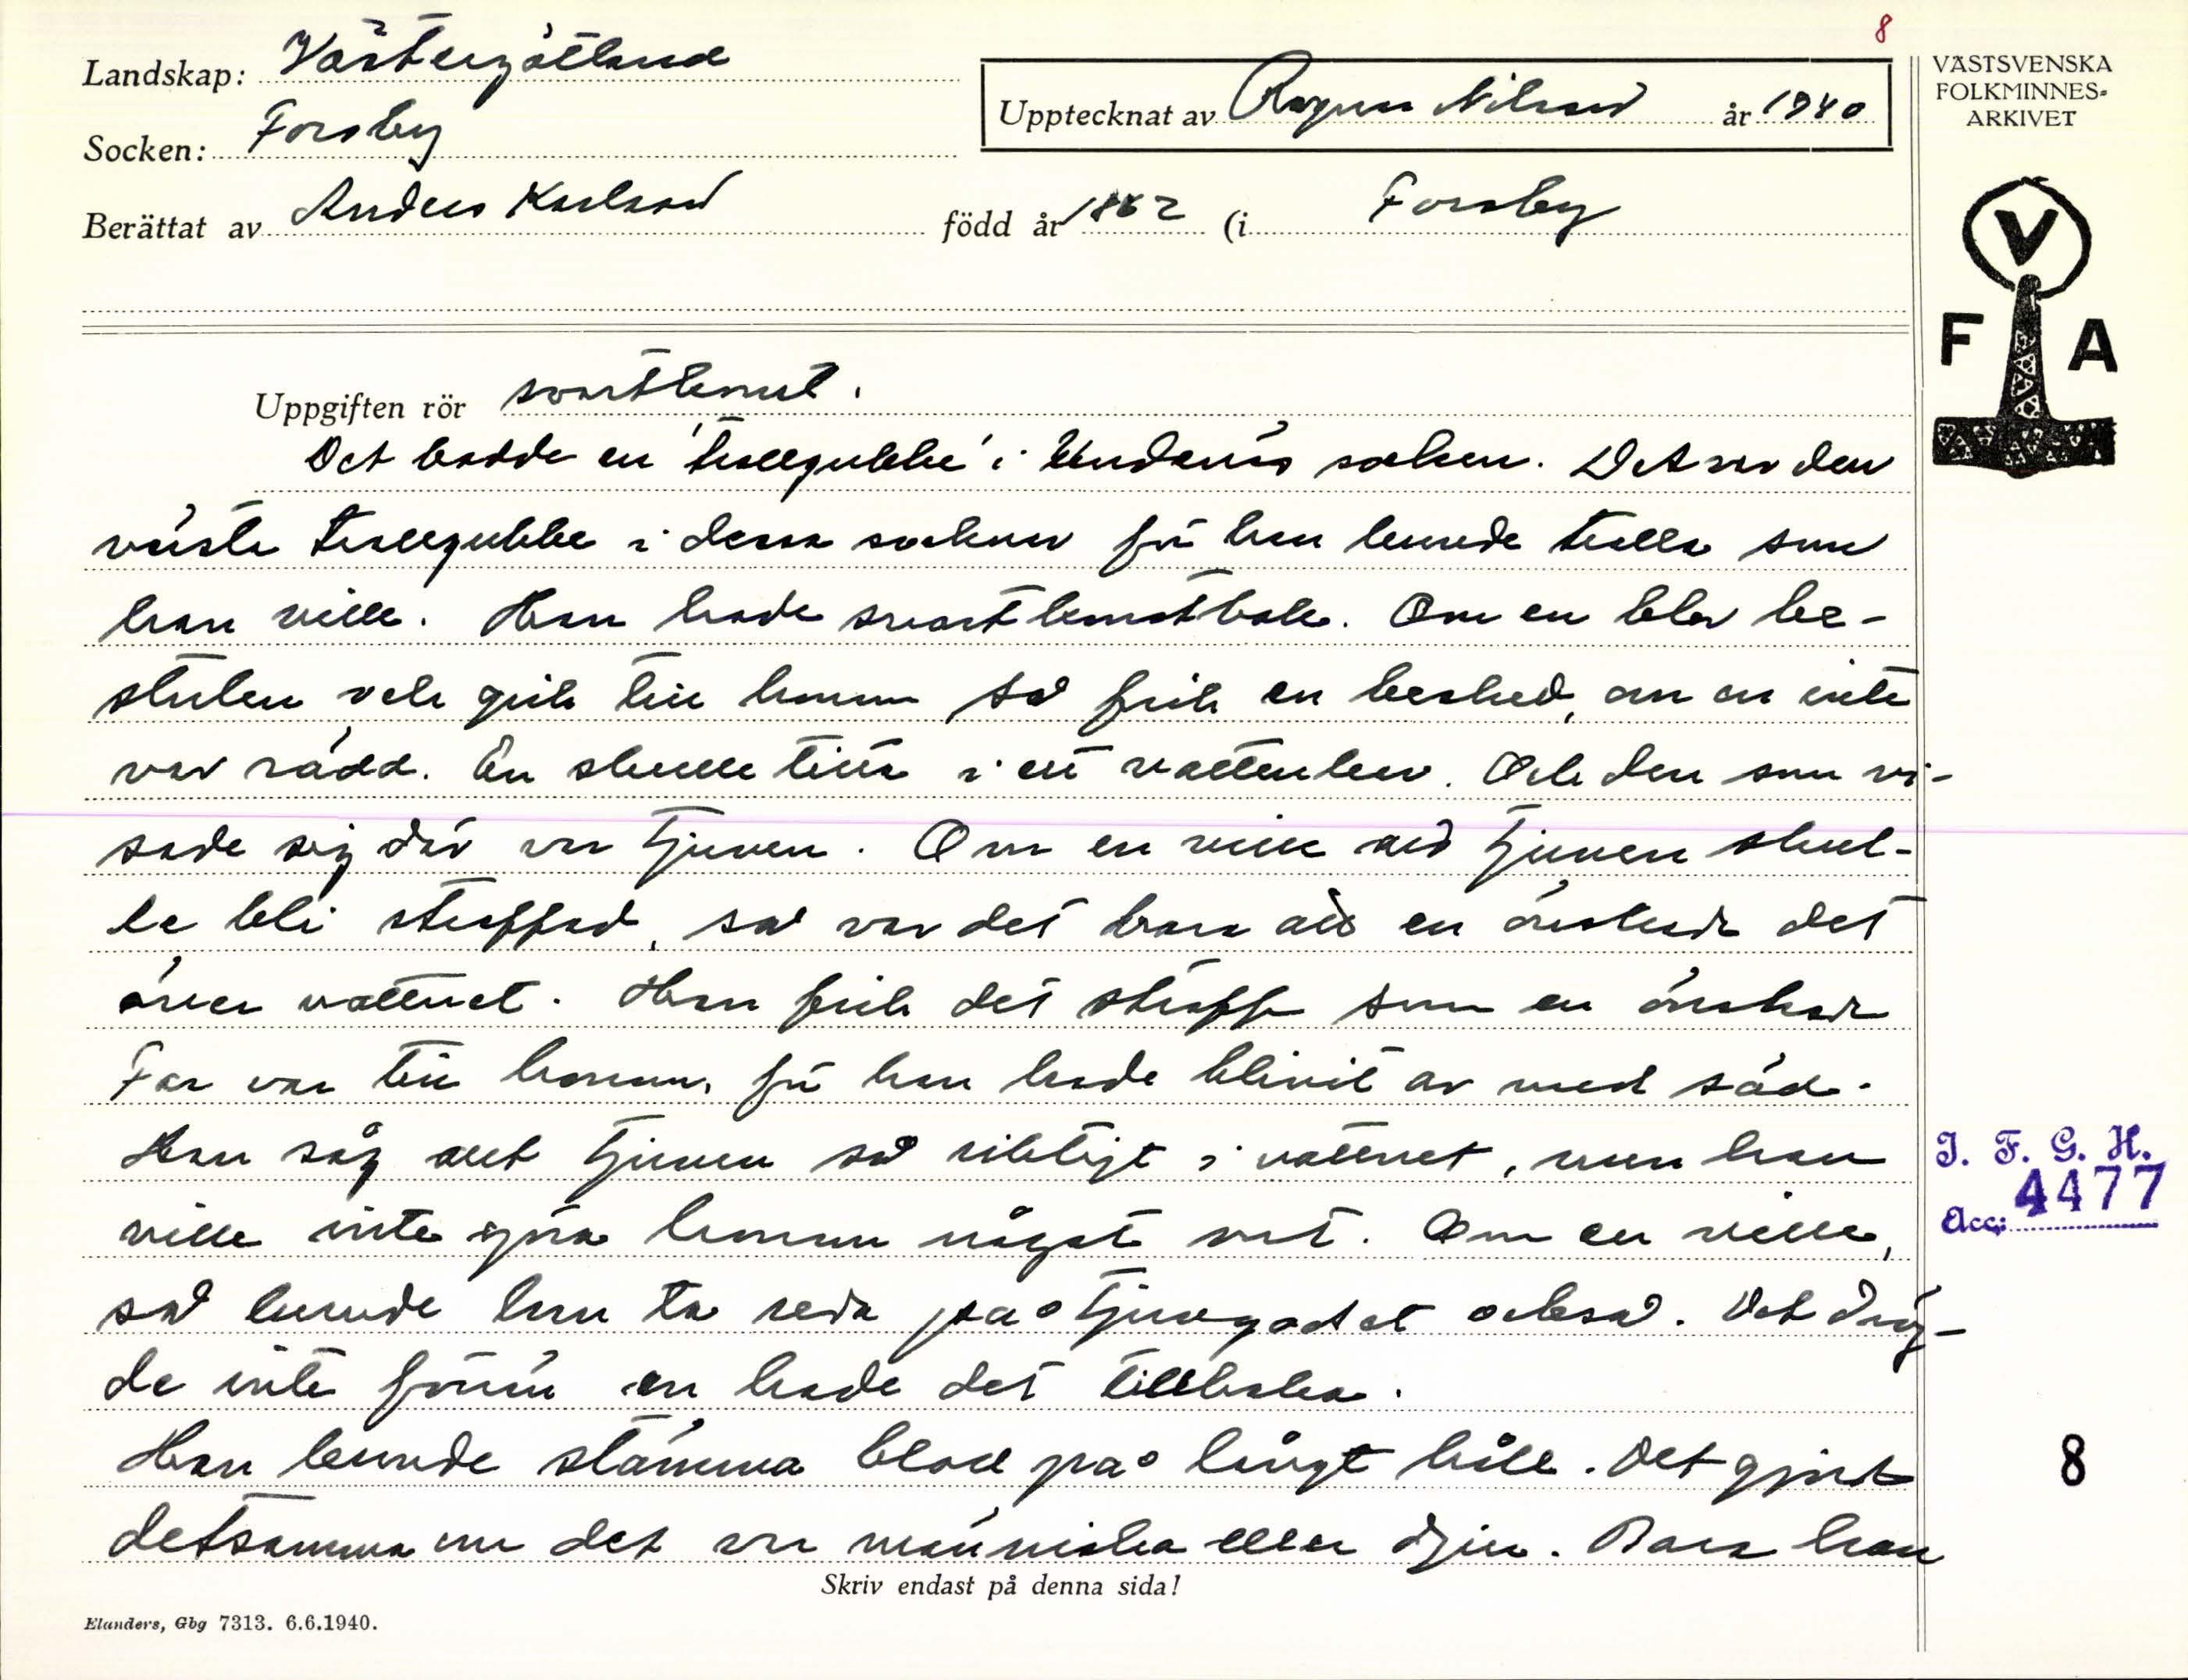 8
Landskap: Västergötland
Socken: Forsby
Upptecknat av Ragnar Nilsson år 1940
Berättat av Anders Karlsson född år 1862 (i Forsby
VÄSTSVENSKA
FOLKMINNES-
ARKIVET
V
F A
Uppgiften rör svartkonst.
Det bodde en 'trollgubbe' i Undenäs socken. Det var den
värste trollgubbe i dessa socknar för han kunde trolla som
han ville. Han hade svartkonstbok. Om en blev be-
stulen och gick till honom så fick en besked, om en inte
var rädd. En skulle titta i ett vattenkar. Och den som vi-
sade sig där var tjuven. Om en ville att tjuven skul-
le bli straffad, så var det bara att en önskade det
över vattnet. Han fick det straff som en önskade
Far var till honom, för han hade blivit av med säd.
Han såg allt tjuven så riktigt i vattnet, men han
ville inte göra honom något ont. Om en ville,
så kunde han ta reda på tjuvgodset också. Det dröj-
de inte förrän en hade det tillbaka.
Han kunde stämma blod på långt håll. Det gjort
detsamma om det var människa eller djur. Bara han
J. F. G. H.
Acc: 4477
8
Skriv endast på denna sida!
Elanders, Gbg 7313. 6.6.1940.